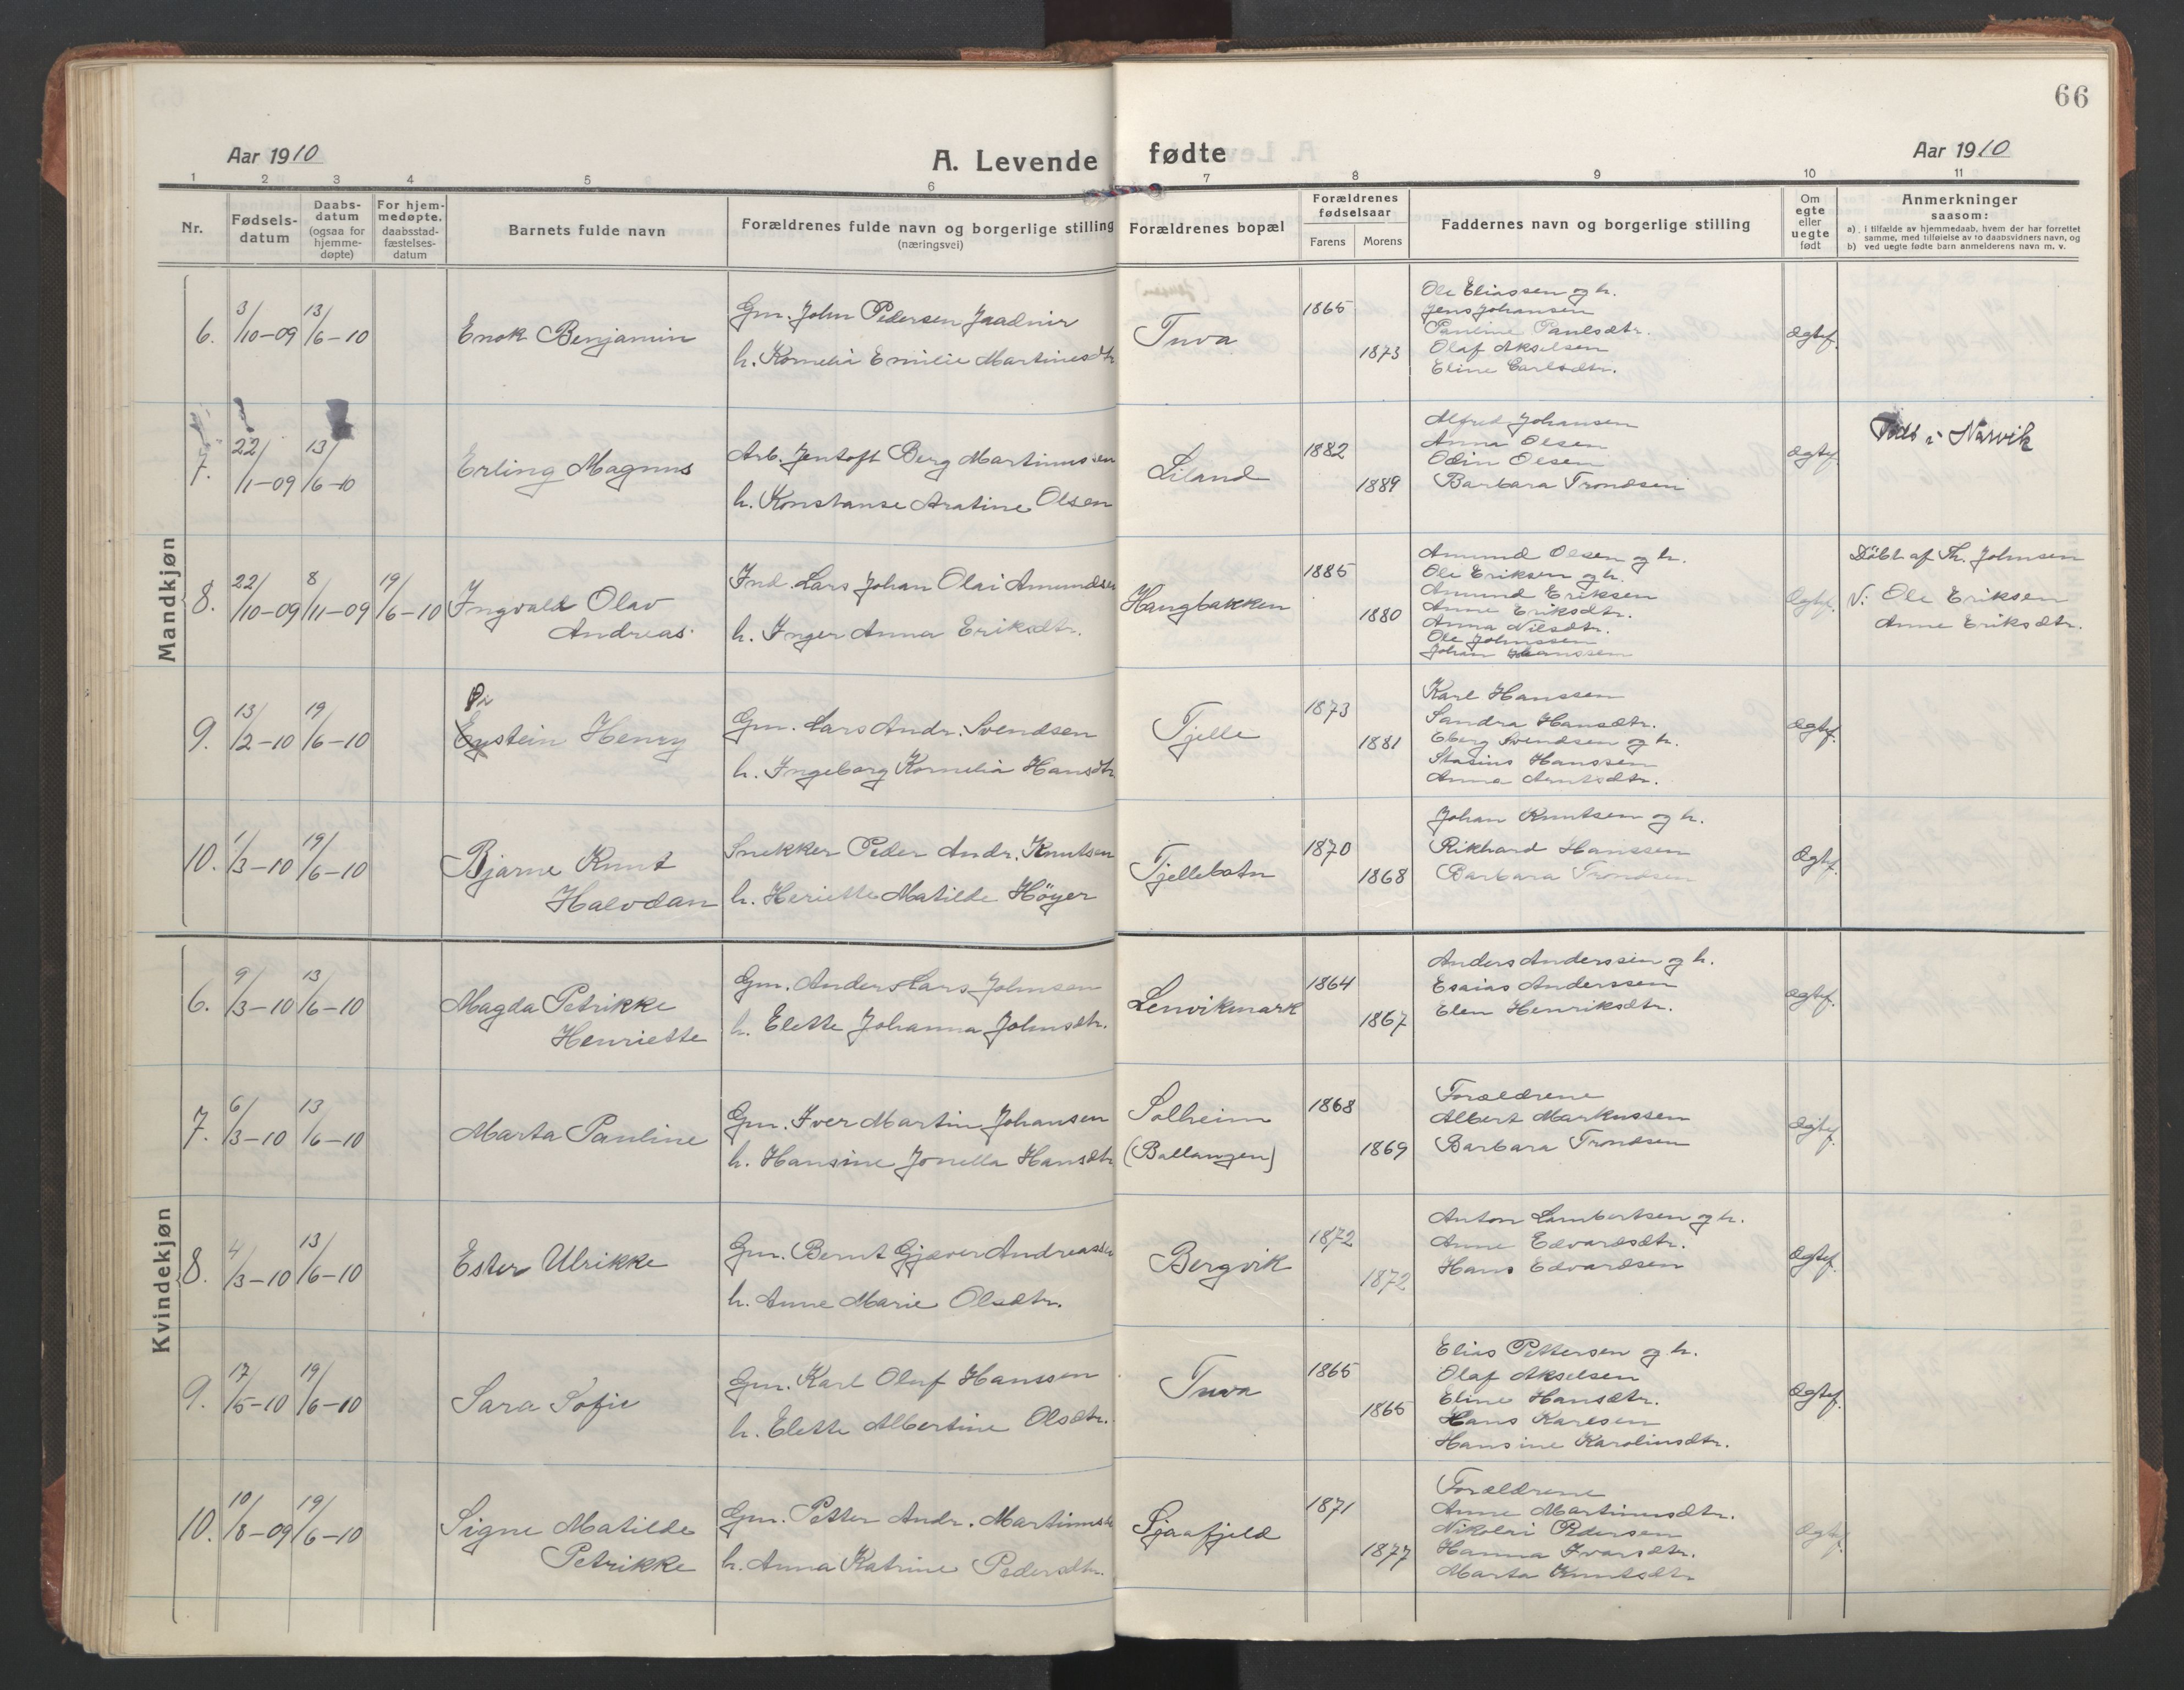 66
Aar 1910
A. Levende fødte
Aar 1910
1 2 3 4 5 6 7 8 9 10 11
Nr.
Fødsels-
datum
Daabs-
datum
(ogsaa for
hjemme-
døpte)
For hjem-
medøpte.
daabsstad-
fæstelses-
datum
Barnets fulde navn
Forældrenes fulde navn og borgerlige stilling
(næringsvei)
Forældrenes bopæl
Forældrenes
fødselsaar
Farens Morens
Faddernes navn og borgerlige stilling
Om
egte
eller
uegte
født
Anmerkninger
saasom:
a). i tilfælde av hjemmedaab, hvem der har forrettet
samme, med tilføielse av to daabsvidners navn, og
b) ved uegte fødte barn anmelderens navn m. v.
Mandkjøn
6. 3/10-09 13/6-10
Enok Benjamin
Gm. John Pedersen
h. Kornelia Emilie Martinusdtr
Tuva
1865
1873
Ole Eliassen og h.
Jens Johansen
Pauline Paulsdtr.
Olaf Akselsen
Eline Carlsdtr.
ægtef.
7. 22/1-09 13/6-10
Erling Magnus
Arb. Jentoft Berg Martinussen
h. Konstanse Aratine Olsen
Liland
1882
1889
Alfred Johansen
Anna Olsen
Odin Olsen
Barbara Trondsen
ægtef.
Født i Narvik
8. 22/10-09 8/11-09 19/6-10
Ingvald Olav
Andreas
Ind. Lars Johan Olai Amundsen
h. Inger Anna Eriksdtr.
Haugbakken
1885
1880
Amund Olsen og h.
Ole Eriksen og h.
Amund Eriksen
Anne Eriksdtr.
Anna Nilsdtr.
Ole Johnssen
Johan Hanssen
Ægtef.
Døbt af Th. Johnsen
V: Ole Eriksen
Anne Eriksdtr.
9. 13/2-10 19/6-10
Eystein Henry
Gm. Lars Andr. Svendsen
h. Ingeborg Kornelia Hansdtr
Tjelle
1873
1881
Karl Hanssen
Sandra Hansdtr.
Eberg Svendsen og h.
Stasius Hanssen
Anna Arntsdtr.
ægtef.
10. 1/3-10 19/6-10
Bjarne Knut
Halvdan
Snekker Peder Andr. Knutsen
h. Heriette Matilde Høyer
Tjellebotn
1870
1868
Johan Knutsen og h.
Rikhard Hanssen
Barbara Trondsen
Ægtef.
Kvindekjøn
6. 9/3-10 13/6-10
Magda Petrikke
Henriette
Gm. Anders Lars Johnsen
h. Elette Johanna Johnsdtr.
Lenvikmark
1864
1867
Anders Anderssen og h.
Esaias Anderssen
Elen Henriksdtr.
ægtef.
7. 6/3-10 13/6-10
Marta Pauline
Gm. Iver Martin Johansen
h. Hansine Jonella Hansdtr
Solheim
(Ballangen)
1868
1869
Forældrene
Albert Markussen
Barbara Trondsen
Ægtef.
8. 4/3-10 13/6-10
Ester Ulrikke
Gm. Bernt Gjæver Andreassen
h. Anne Marie Olsdtr.
Bergvik
1872
1872
Anton Lambertsen og h.
Anne Edvardsdtr.
Hans Edvardsen
Ægtef.
9. 17/5-10 19/6-10
Sara Sofie
Gm. Karl Oluf Hanssen
h. Elette Albertine Olsdtr.
Tuva
1865
1865
Elias Pettersen og h.
Olaf Akselsen
Eline Hansdtr.
Hans Karlsen
Hansine Karolinsdtr.
Ægtef.
10. 10/8-09 19/6-10
Signe Matilde
Petrikke
Gm. Petter Andr. Martinussen
h. Anna Katrine Pedersdtr.
Sjaafjeld
1871
1877
Forældrene
Anne Martinusdtr.
Nikolai Pedersen
Hanna Ivarsdtr.
Marta Knutsdtr
Ægtef.